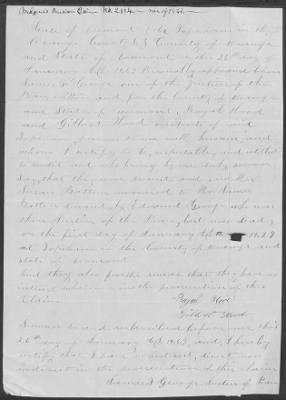 State of Vermont } At Topsham in the
Orange County SS } County of Orange
and State of Vermont on the 26th day of
January A.D. 1863 Personally appeared before
me James D. George one of the Justices of the
Peace within and for the County of Orange
and State of Vermont, Royal Hood
and Gilbert Hood residents of said
Topsham to me well known, and
whom I certify to be respectable and entitled
to credit and who being by me duly sworn
say, that they were present and saw Mrs
Susan Battin married to Mr James
Battin by Edmund George who was
then Justice of the Peace, but now dead,
on the first day of January A.D. 1827
at Topsham in the County of Orange and
State of Vermont
and they also further swear that they have no
interest whatever in the prosecution of this
Claim
Royal Hood
Gilbert Hood
Sworn to and subscribed before me this
26th day of January A.D. 1863, and I hereby
certify that I have no interest, direct nor
indirect in the prosecution of this claim
James D George Justice of Peace